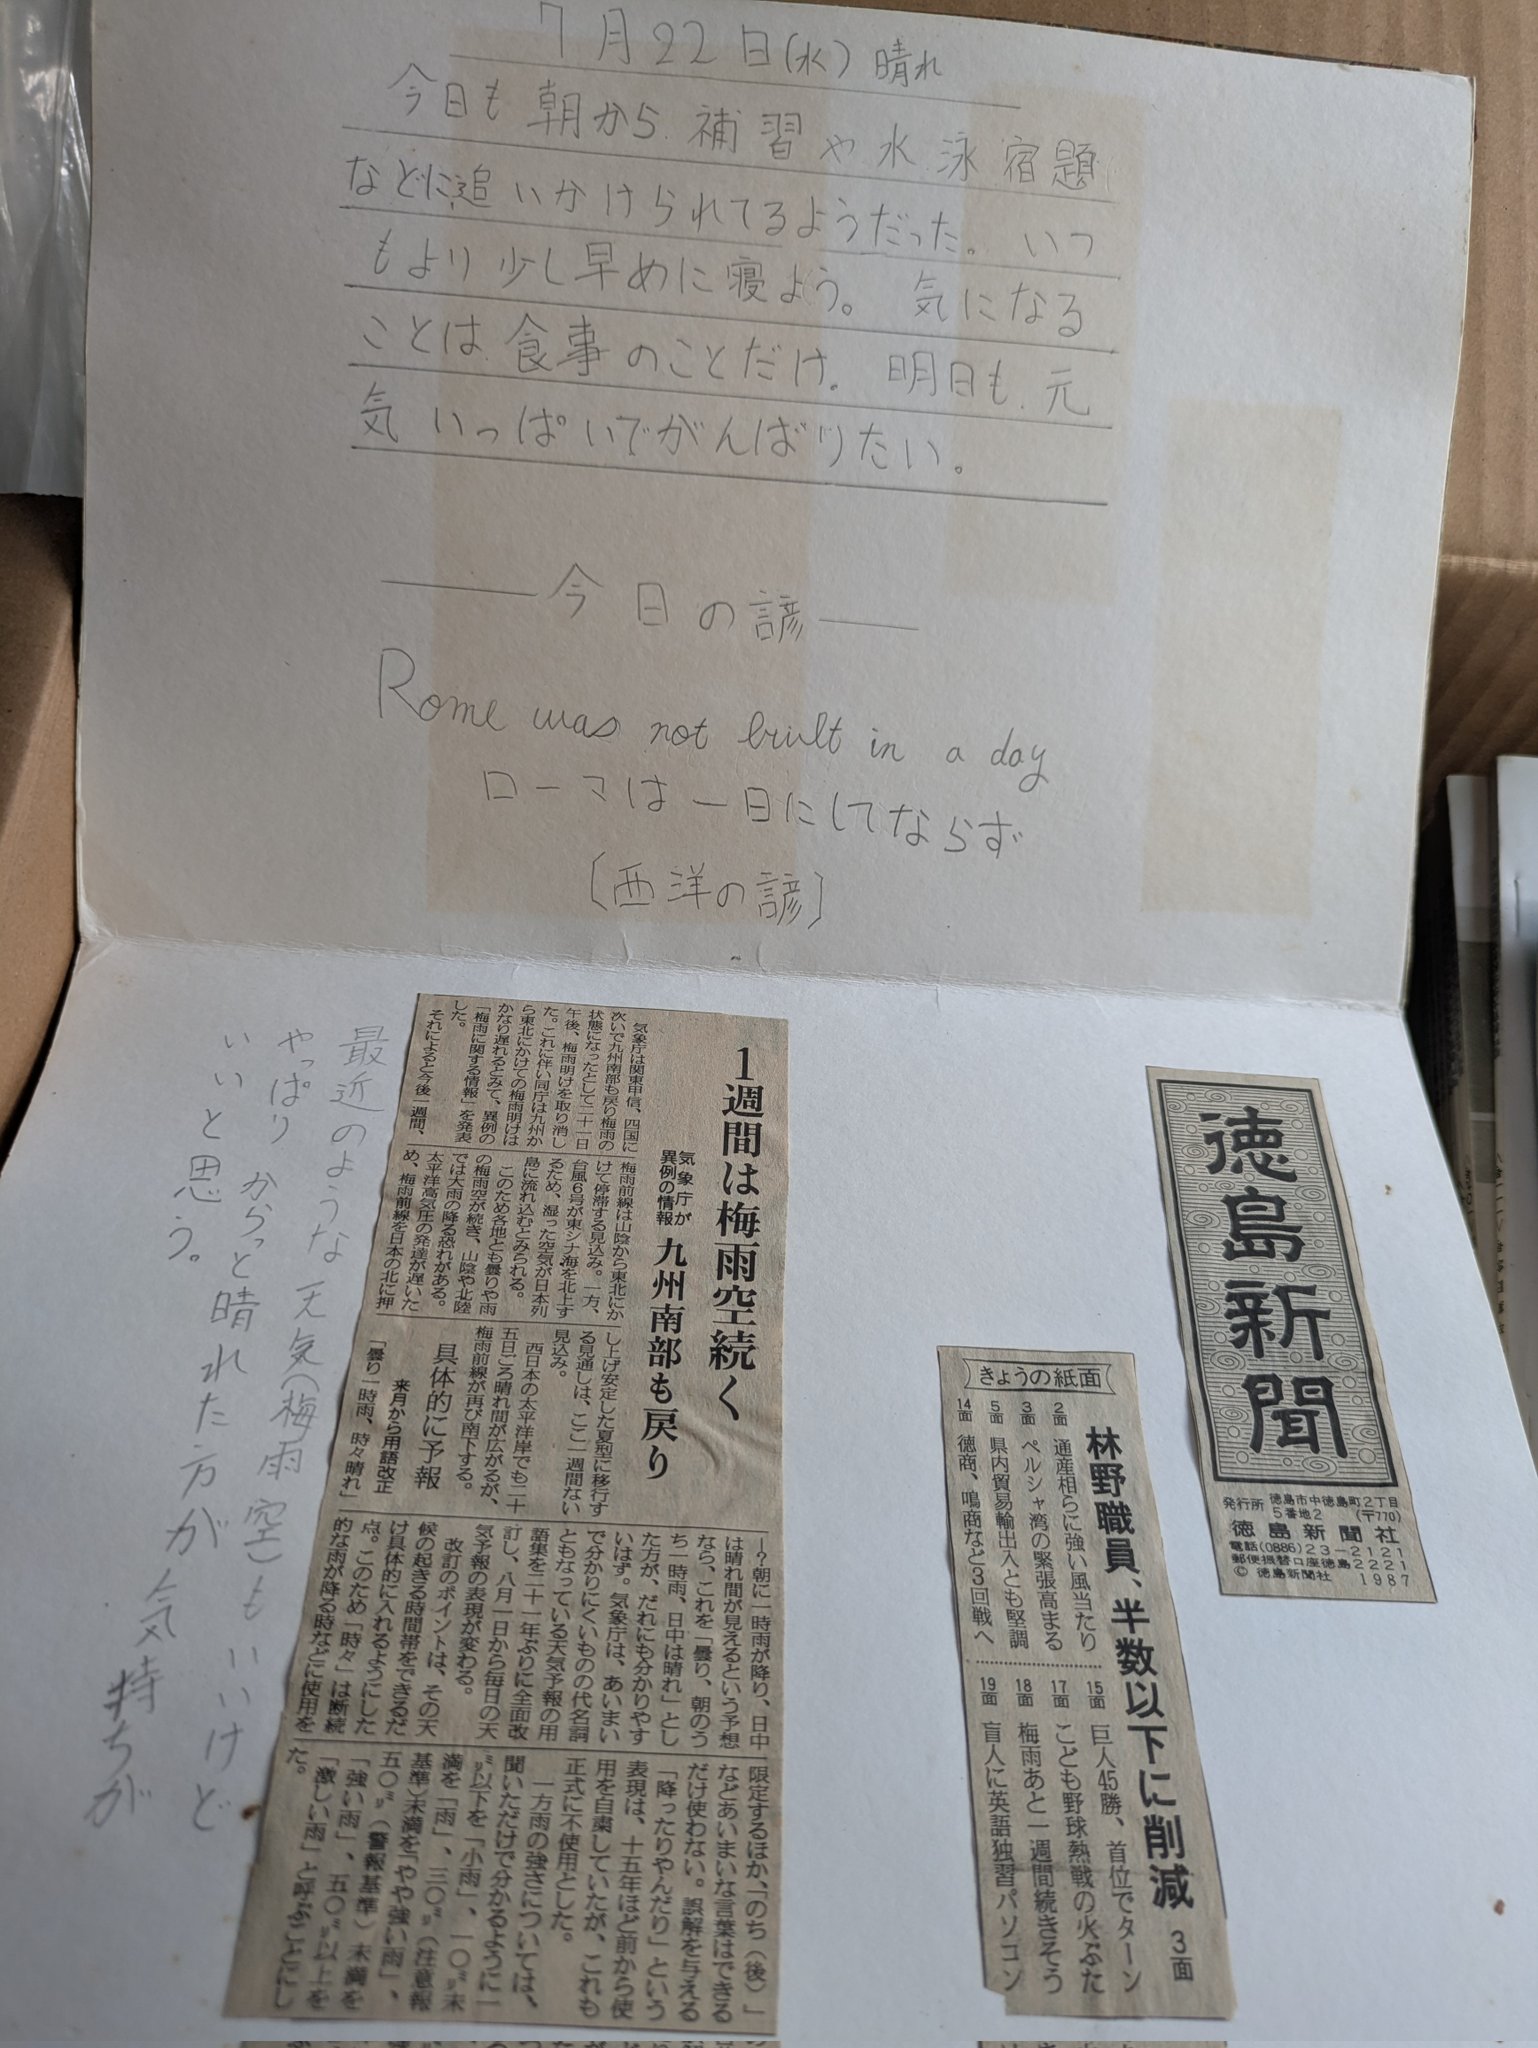 7月22日(水) 晴れ
今日も朝から補習や水泳宿題
などに追いかけられてるようだった。いつ
もより少し早めに寝よう。気になる
ことは食事のことだけ。明日も元
気いっぱいでがんばりたい。
今日の諺
Rome was not built in a day
ローマは一日にしてならず
〔西洋の諺〕
徳島新聞
発行所 徳島市中徳島町2丁目
5番地2 (〒770)
徳島新聞社
電話(0886)23-2121
郵便振替口座徳島2221
© 徳島新聞社 1987
きょうの紙面
林野職員、半数以下に削減 3面
2面 通産相らに強い風当たり
3面 ペルシャ湾の緊張高まる
5面 県内貿易輸出入とも堅調
14面 徳商、鳴商など3回戦へ
15面 巨人45勝、首位でターン
17面 こども野球熱戦の火ぶた
18面 梅雨あと一週間続きそう
19面 盲人に英語独習パソコン
1週間は梅雨空続く
気象庁が
異例の情報
九州南部も戻り
気象庁は関東甲信、四国に
次いで九州南部も戻り梅雨の
状態になったとして二十一日
午後、梅雨明けを取り消し
た。これに伴い同庁は九州か
ら東北にかけての梅雨明けは
かなり遅れるとみて、異例の
「梅雨に関する情報」を発表
した。
それによると今後一週間、
梅雨前線は山陰から東北にか
けて停滞する見込み。一方、
台風6号が東シナ海を北上す
るため、湿った空気が日本列
島に流れ込むとみられる。
このため各地とも曇りや雨
の梅雨空が続き、山陰や北陸
では大雨の降る恐れがある。
太平洋高気圧の発達が遅いた
め、梅雨前線を日本の北に押
し上げ安定した夏型に移行す
る見通しは、ここ一週間ない
見込み。
西日本の太平洋岸でも二十
五日ごろ晴れ間が広がるが、
梅雨前線が再び南下する。
具体的に予報
来月から用語改正
「曇り一時雨、時々晴れ」
―?朝に一時雨が降り、日中
は晴れ間が見えるという予想
なら、これを「曇り、朝のう
ち一時雨、日中は晴れ」とし
た方が、だれにも分かりやす
いはず。気象庁は、あいまい
で分かりにくいものの代名詞
ともなっている天気予報の用
語集を二十一年ぶりに全面改
訂し、八月一日から毎日の天
気予報の表現が変わる。
改訂のポイントは、その天
候の起きる時間帯をできるだ
け具体的に入れるようにした
点。このため「時々」は断続
的な雨が降る時などに使用を
限定するほか、「のち(後)」
などあいまいな言葉はできる
だけ使わない。誤解を与える
「降ったりやんだり」という
表現は、十五年ほど前から使
用を自粛していたが、これも
正式に不使用とした。
一方雨の強さについては、
聞いただけで分かるように一
㍉以下を「小雨」、一〇㍉未
満を「雨」、三〇㍉(注意報
基準)未満を「やや強い雨」、
五〇㍉(警報基準)未満を
「強い雨」、五〇㍉以上を
「激しい雨」と呼ぶことにし
た。
最近のような天気(梅雨空)もいいけど
やっぱりからっと晴れた方が気持ちが
いいと思う。